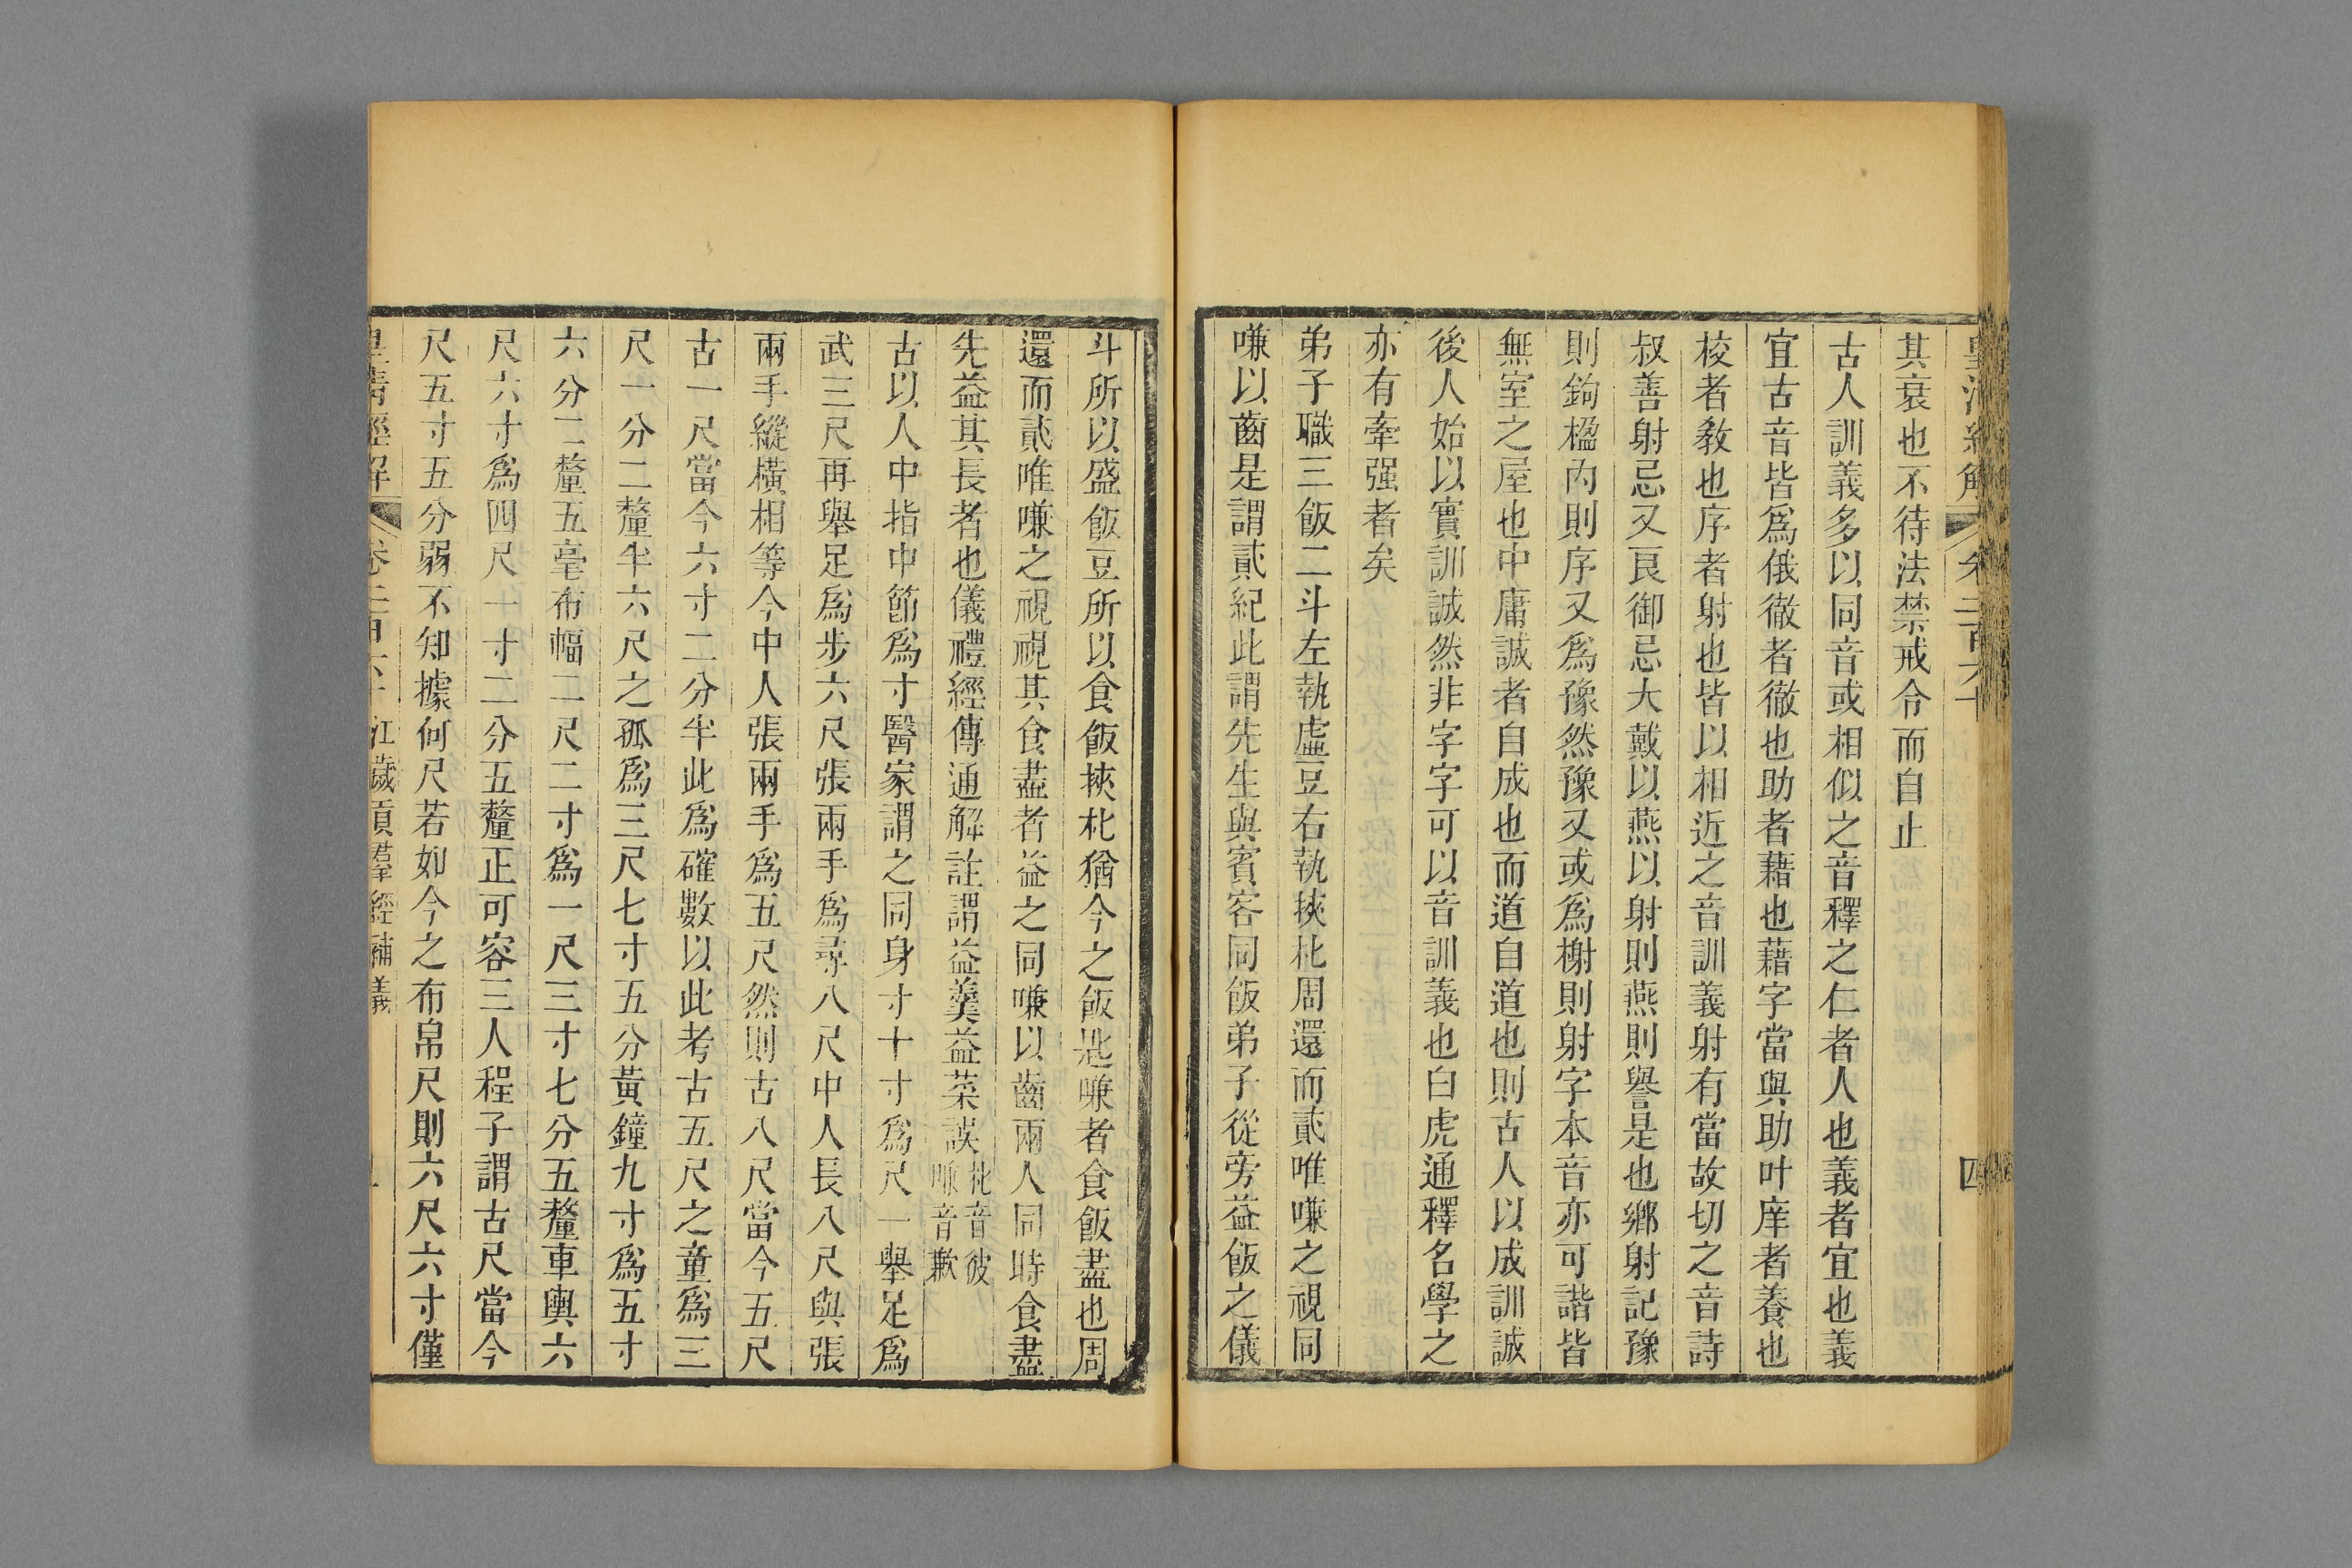 皇清經解 卷二百六十 四
其衰也不待法禁戒令而自止
古人訓義多以同音或相似之音釋之仁者人也義者宜也義
宜古音皆爲俄徹者徹也助者藉也藉字當與助叶庠者養也
校者敎也序者射也皆以相近之音訓義射有當故切之音詩
叔善射忌又良御忌大戴以燕以射則燕則譽是也鄉射記豫
則鉤楹內則序又爲豫然豫又或爲榭則射字本音亦可諧皆
無室之屋也中庸誠者自成也而道自道也則古人以成訓誠
後人始以實訓誠然非字字可以音訓義也白虎通釋名學之
亦有牽强者矣
弟子職三飯二斗左執虛豆右執挾朼周還而貳唯嗛之視同
嗛以齒是謂貳紀此謂先生與賓客同飯弟子從旁益飯之儀
斗所以盛飯豆所以食飯挾朼猶今之飯匙嗛者食飯盡也周
還而貳唯嗛之視視其食盡者益之同嗛以齒兩人同時食盡
先益其長者也儀禮經傳通解註謂益羹益菜誤朼音彼嗛音歉
古以人中指中節爲寸醫家謂之同身寸十寸爲尺一舉足爲
武三尺再舉足爲步六尺張兩手爲尋八尺中人長八尺與張
兩手縱橫相等今中人張兩手爲五尺然則古八尺當今五尺
古一尺當今六寸二分半此爲確數以此考古五尺之童爲三
尺一分二釐半六尺之孤爲三尺七寸五分黃鐘九寸爲五寸
六分二釐五毫布幅二尺二寸爲一尺三寸七分五釐車輿六
尺六寸爲四尺一寸二分五釐正可容三人程子謂古尺當今
尺五寸五分弱不知據何尺若如今之布帛尺則六尺六寸僅
皇清經解 卷二百六十 江歲貢羣經補義